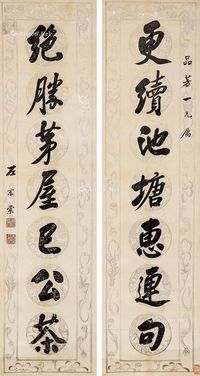 品芳一兄屬
更續池塘惠連句
絕勝茅屋巳公茶
左宗棠